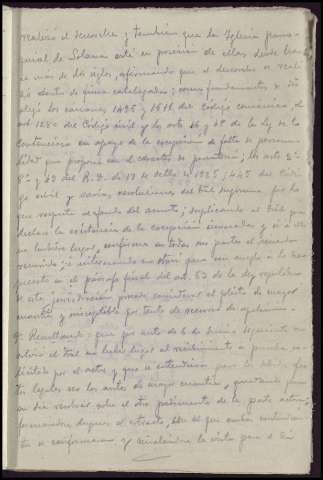 realizó el derecho y también que la Iglesia parro-
quial de Solana está en posesión de ellas desde hace
ya más de dos siglos, afirmando que el derecho se reali-
zó dentro de finca catalogada; como fundamentos de Dº
alegó los cánones 1495 y 1618 del Código canónico, el
art. 1280 del Código civil y los arts 46 y 4º de la ley de lo
contencioso en apoyo de la excepción de falta de personali-
dad que propone en el carácter de perentoria; los arts 2º
8º y 43 del R.D. de 17 de octbre de 1925 y 445 del Códi-
go civil y varias resoluciones del Trbl Supremo por lo
que respecta al fondo del asunto; suplicando al Trbl que
declare la existencia de la excepción enunciada y si a ello
no hubiere lugar, confirme en todas sus partes el acuerdo
recurrido; e interesando en otrosí para dar cumplto a lo dis-
puesto en el párrafo final del art. 63 de la ley reguladora
de esta jurisdicción procede considerar el pleito de mayor
cuantía y susceptible por tanto de recurso de apelación.
9º Resultando: que por auto de 6 de Junio siguiente
el Trbl no haber lugar al recibimiento a prueba so-
licitado por el actor y que se entendieran para los
tos legales ser los autos de mayor cuantía,
su día resolver sobre el otro pedimento de la parte actora;
formándose después el extracto, con el que ambas
tes se conformaron y señalándose la vista para el día